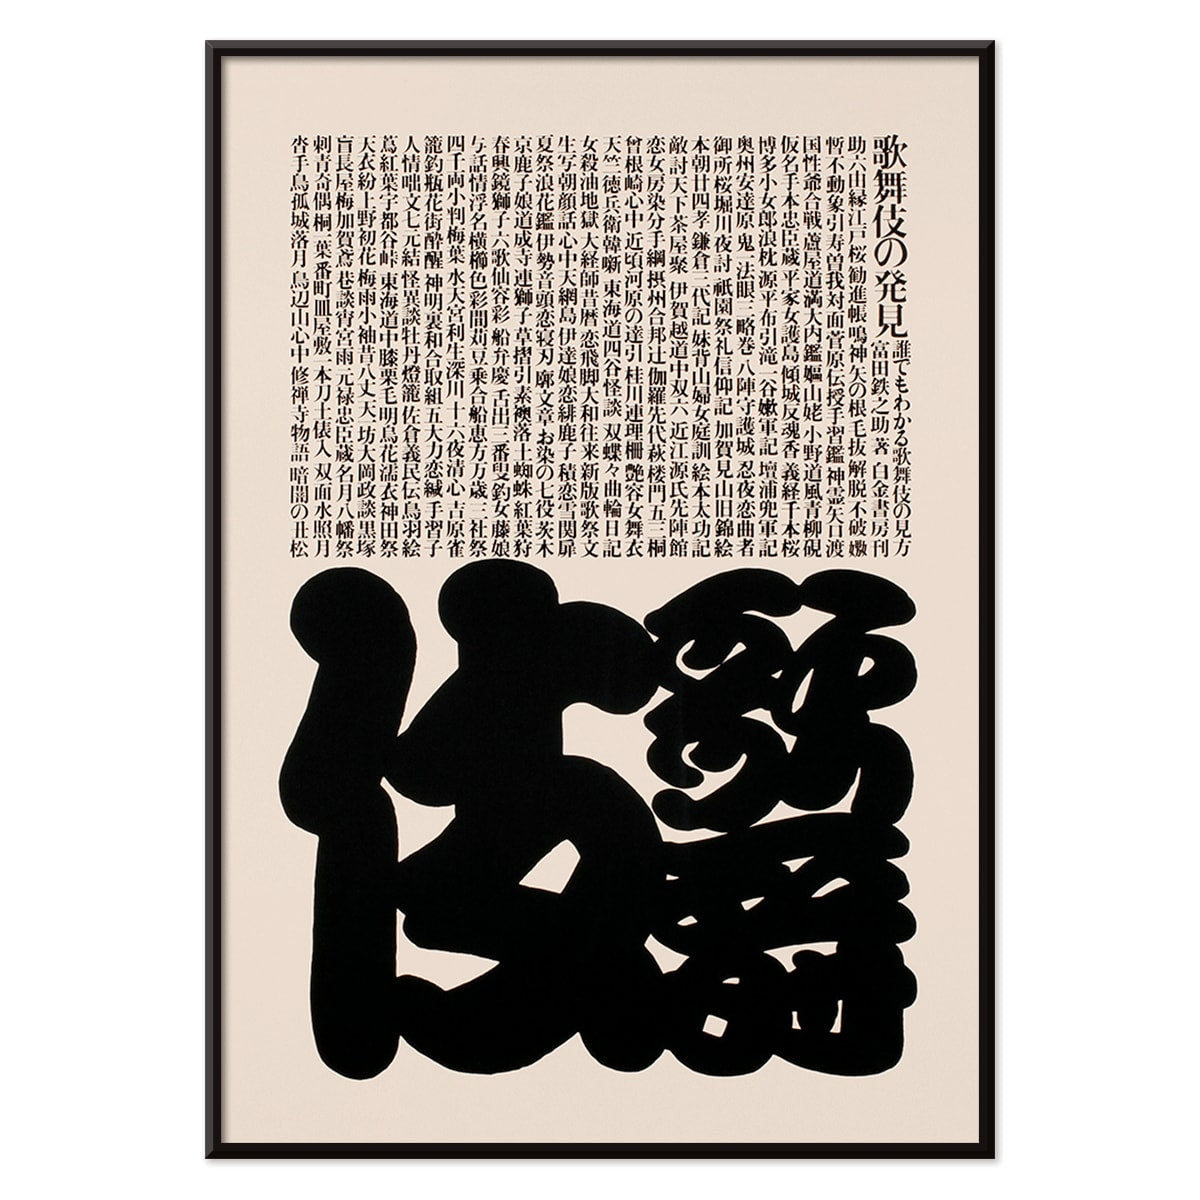 歌舞伎の発見
誰でもわかる歌舞伎の見方
富田鉄之助 著 白金書房刊
助六由縁江戸桜 勧進帳 鳴神 矢の根 毛抜 解脱 不破 嫐
暫 不動 象引 寿曽我対面 菅原伝授手習鑑 神霊矢口渡
国性爺合戦 蘆屋道満大内鑑 嫗山姥 小野道風青柳硯
仮名手本忠臣蔵 平家女護島 傾城反魂香 義経千本桜
博多小女郎浪枕 源平布引滝 一谷嫩軍記 壇浦兜軍記
奥州安達原 鬼一法眼三略巻 八陣守護城 忍夜恋曲者
御所桜堀川夜討 祇園祭礼信仰記 加賀見山旧錦絵
本朝廿四孝 鎌倉三代記 妹背山婦女庭訓 絵本太功記
敵討天下茶屋聚 伊賀越道中双六 近江源氏先陣館
恋女房染分手綱 摂州合邦辻 伽羅先代萩 楼門五三桐
曾根崎心中 近頃河原の達引 桂川連理柵 艶容女舞衣
天竺徳兵衛韓噺 東海道四谷怪談 双蝶々曲輪日記
女殺油地獄 大経師昔暦 恋飛脚大和往来 新版歌祭文
生写朝顔話 心中天網島 伊達娘恋緋鹿子 積恋雪関扉
夏祭浪花鑑 伊勢音頭恋寝刃 廓文章 お染の七役 茨木
京鹿子娘道成寺 連獅子 草摺引 素襖落 土蜘蛛 紅葉狩
春興鏡獅子 六歌仙容彩 船弁慶 舌出三番叟 釣女 藤娘
与話情浮名横櫛 色彩間苅豆 乗合船恵方万歳 三社祭
四千両小判梅葉 水天宮利生深川 十六夜清心 吉原雀
籠釣瓶花街酔醒 神明恵和合取組 五大力恋緘 手習子
人情噺文七元結 怪異談牡丹燈籠 佐倉義民伝 鳥羽絵
蔦紅葉宇都谷峠 東海道中膝栗毛 明烏花濡衣 神田祭
天衣紛上野初花 梅雨小袖昔八丈 天一坊大岡政談 黒塚
盲長屋梅加賀鳶 巷談宵宮雨 元禄忠臣蔵 名月八幡祭
刺青奇偶 桐一葉 番町皿屋敷 一本刀土俵入 双面水照月
沓手鳥孤城落月 鳥辺山心中 修禅寺物語 暗闇の丑松
歌舞
伎